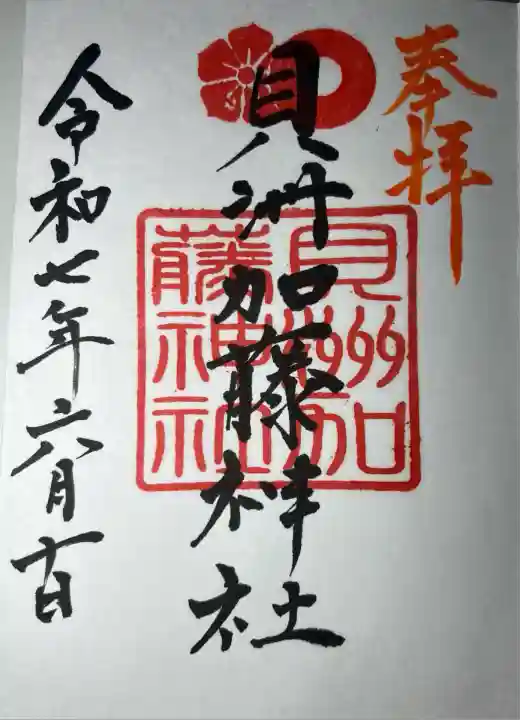 奉拝
貝洲加藤神社
貝洲加藤神社
令和七年六月十日